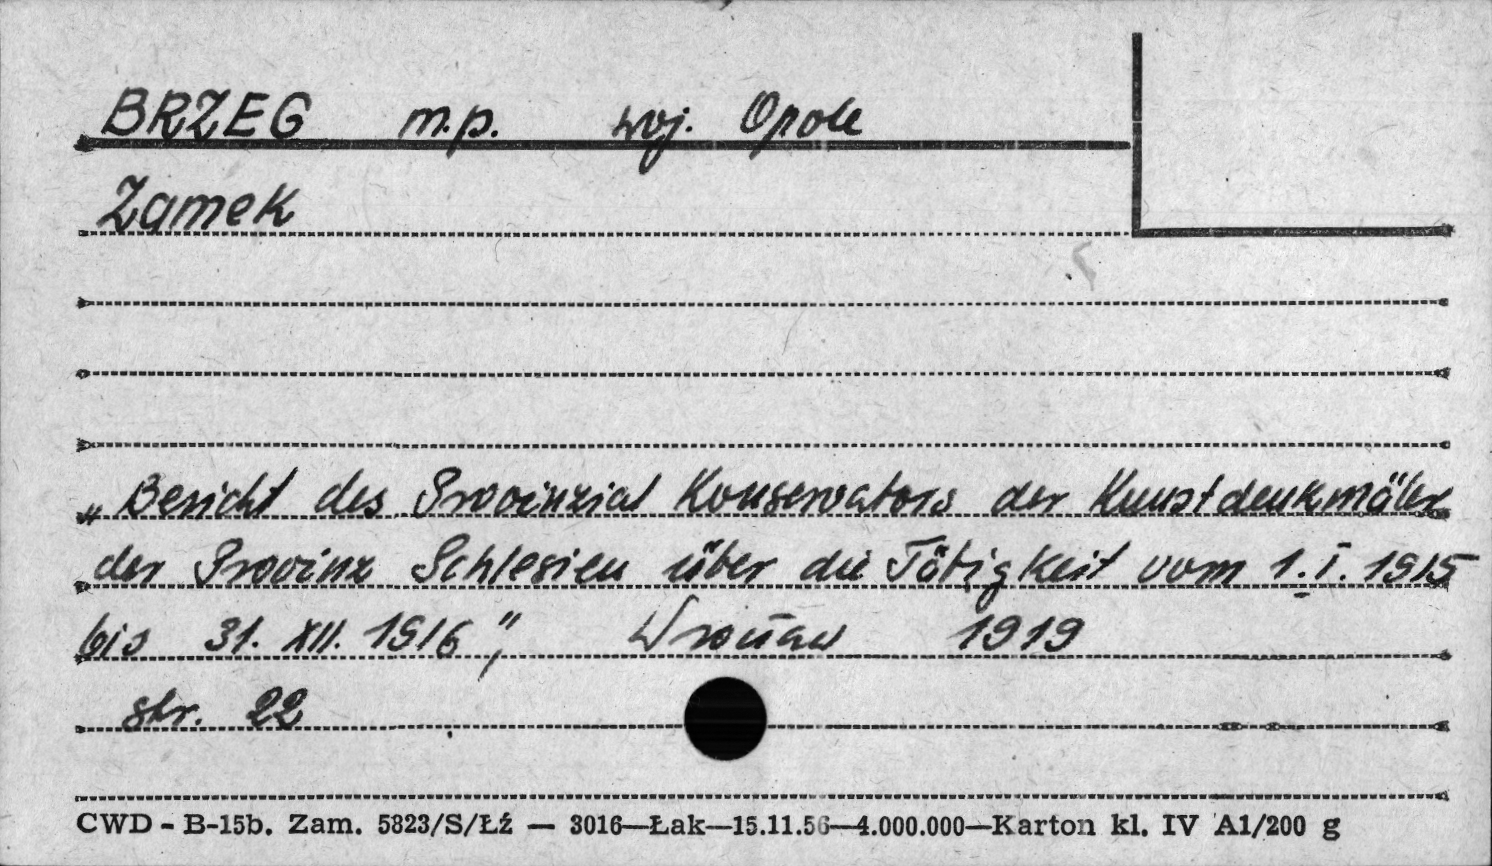 BRZEG m.p. woj. Opole
Zamek
„Bericht des Provinzial Konservators der Kunstdenkmäler
der Provinz Schlesien über die Tätigkeit vom 1.I.1915
bis 31. XII. 1916", Wrocław 1919
str. 22
CWD - B-15b. Zam. 5823/S/Łź — 3016—Łak—15.11.56—4.000.000—Karton kl. IV A1/200 g